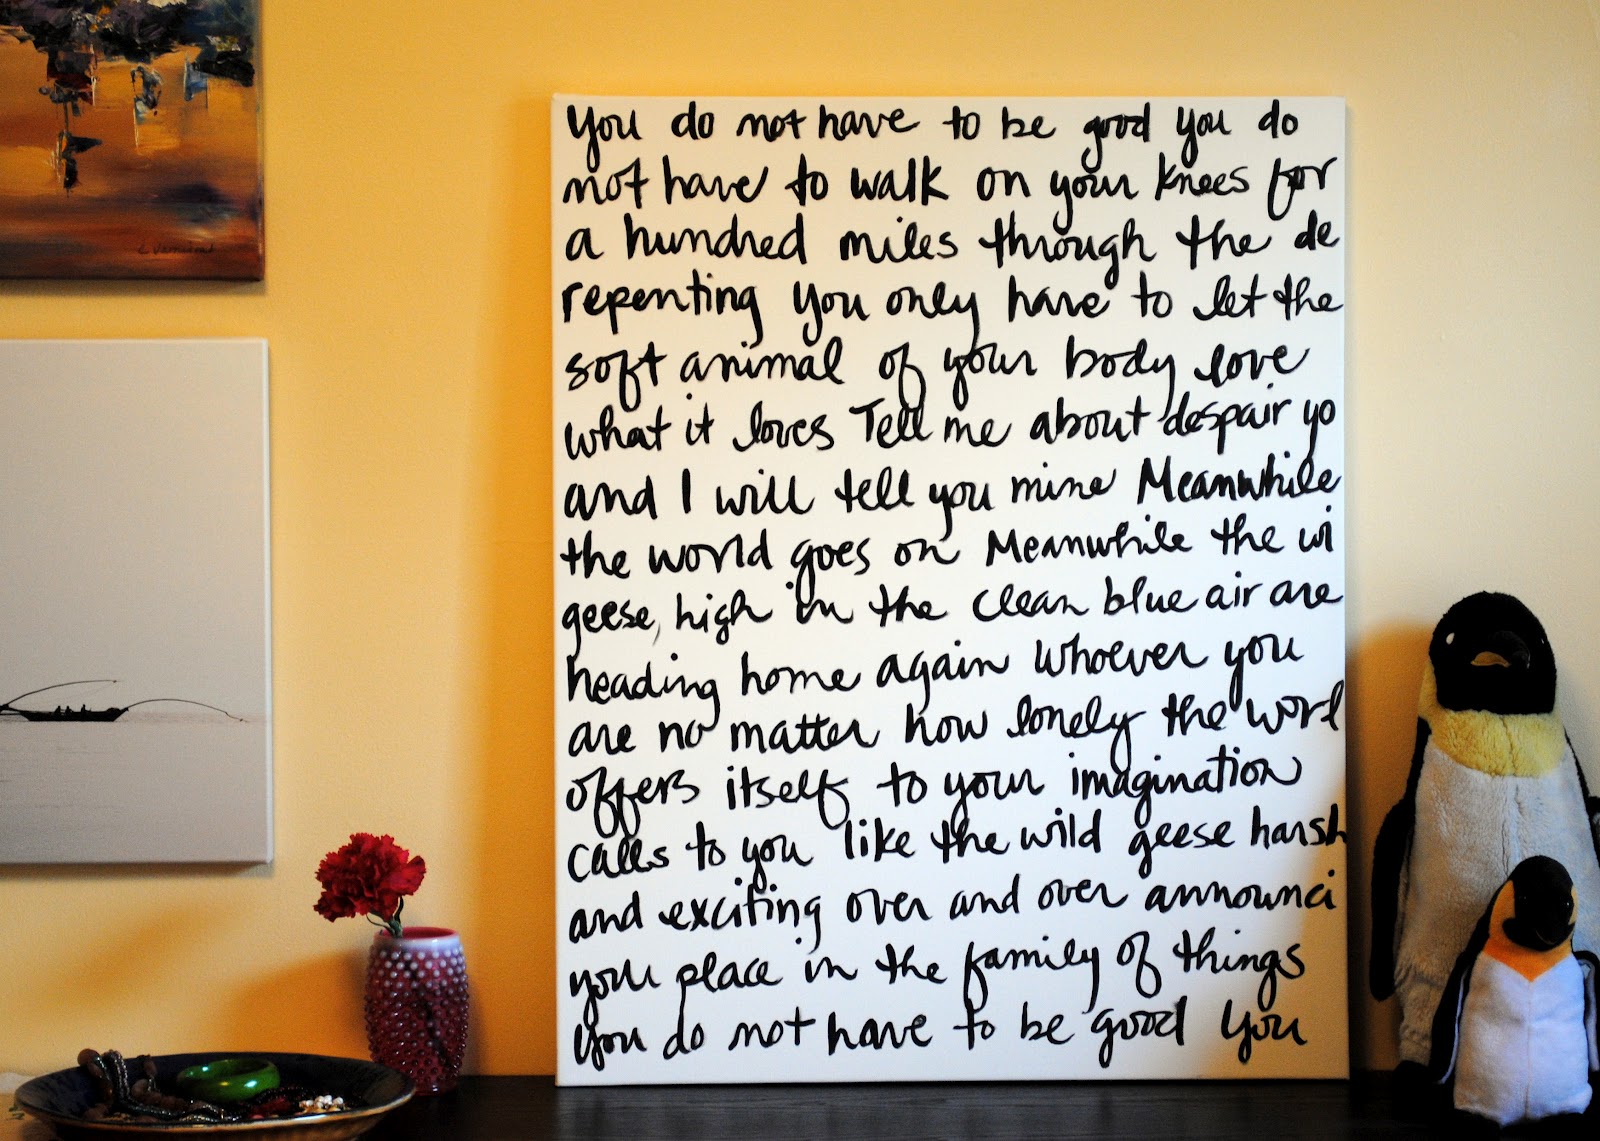 You do not have to be good you do
not have to walk on your knees for
a hundred miles through the de
repenting you only have to let the
soft animal of your body love
what it loves Tell me about despair yo
and I will tell you mine Meanwhile
the world goes on Meanwhile the wi
geese, high in the clean blue air are
heading home again Whoever you
are no matter how lonely the worl
offers itself to your imagination
calls to you like the wild geese harsh
and exciting over and over announci
your place in the family of things
you do not have to be good you